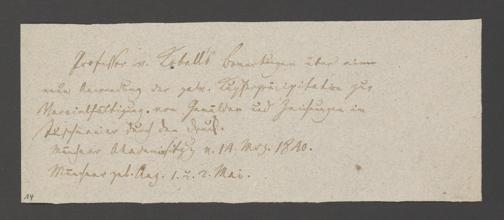 Professor v. Kobell's Bemerkungen über eine
neue Anwendung der galv. Kupferpräcipitation zur
Vervielfältigung von Gemälden und Zeichnungen in
Tuschmanier durch den Druck.
Münchner Akademiesitzg v. 14. Mrz. 1840.
Münchner gel. Anz. 1. u. 2. Mai.
14